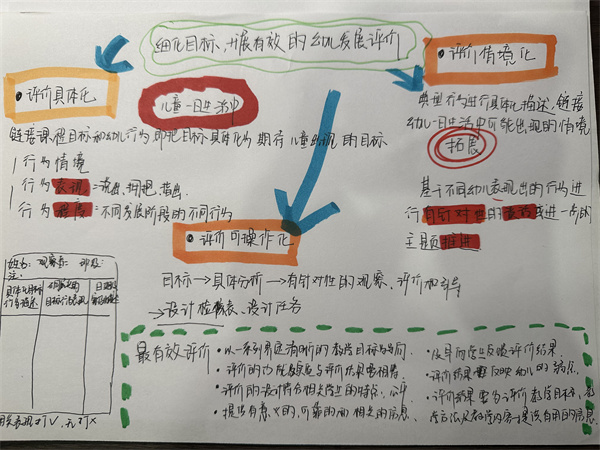 细化目标,开展有效的幼儿发展评价
·评价具体化
儿童一日生活中
·评价情境化
链接课程目标和幼儿行为,即把目标具体化为期待儿童出现的目标
行为情境
行为表现:
行为程度:不同发展阶段的不同行为
典型行为进行具体化描述,链接
幼儿一日生活中可能出现的情境
拓展
基于不同幼儿表现出的行为进
行有针对性的进一步的
主题推进
·评价可操作化
目标→具体分析→有针对性的观察、评价和指导
→设计检核表、设计任务
姓名: 观察者:
注:
具体化目标
行为描述
最有效评价
·以一系列清晰的教学目标为导向.
·评价的方式与评价结果要相符.
·评价的设计符合相关学生的特征,公平
·提供有意义的,可靠的和相关的信息.
·及时向学生反馈评价结果.
·评价结果要反映幼儿的
·评价结果要为评价教学目标、教
学方法及教学内容提供有用的信息.